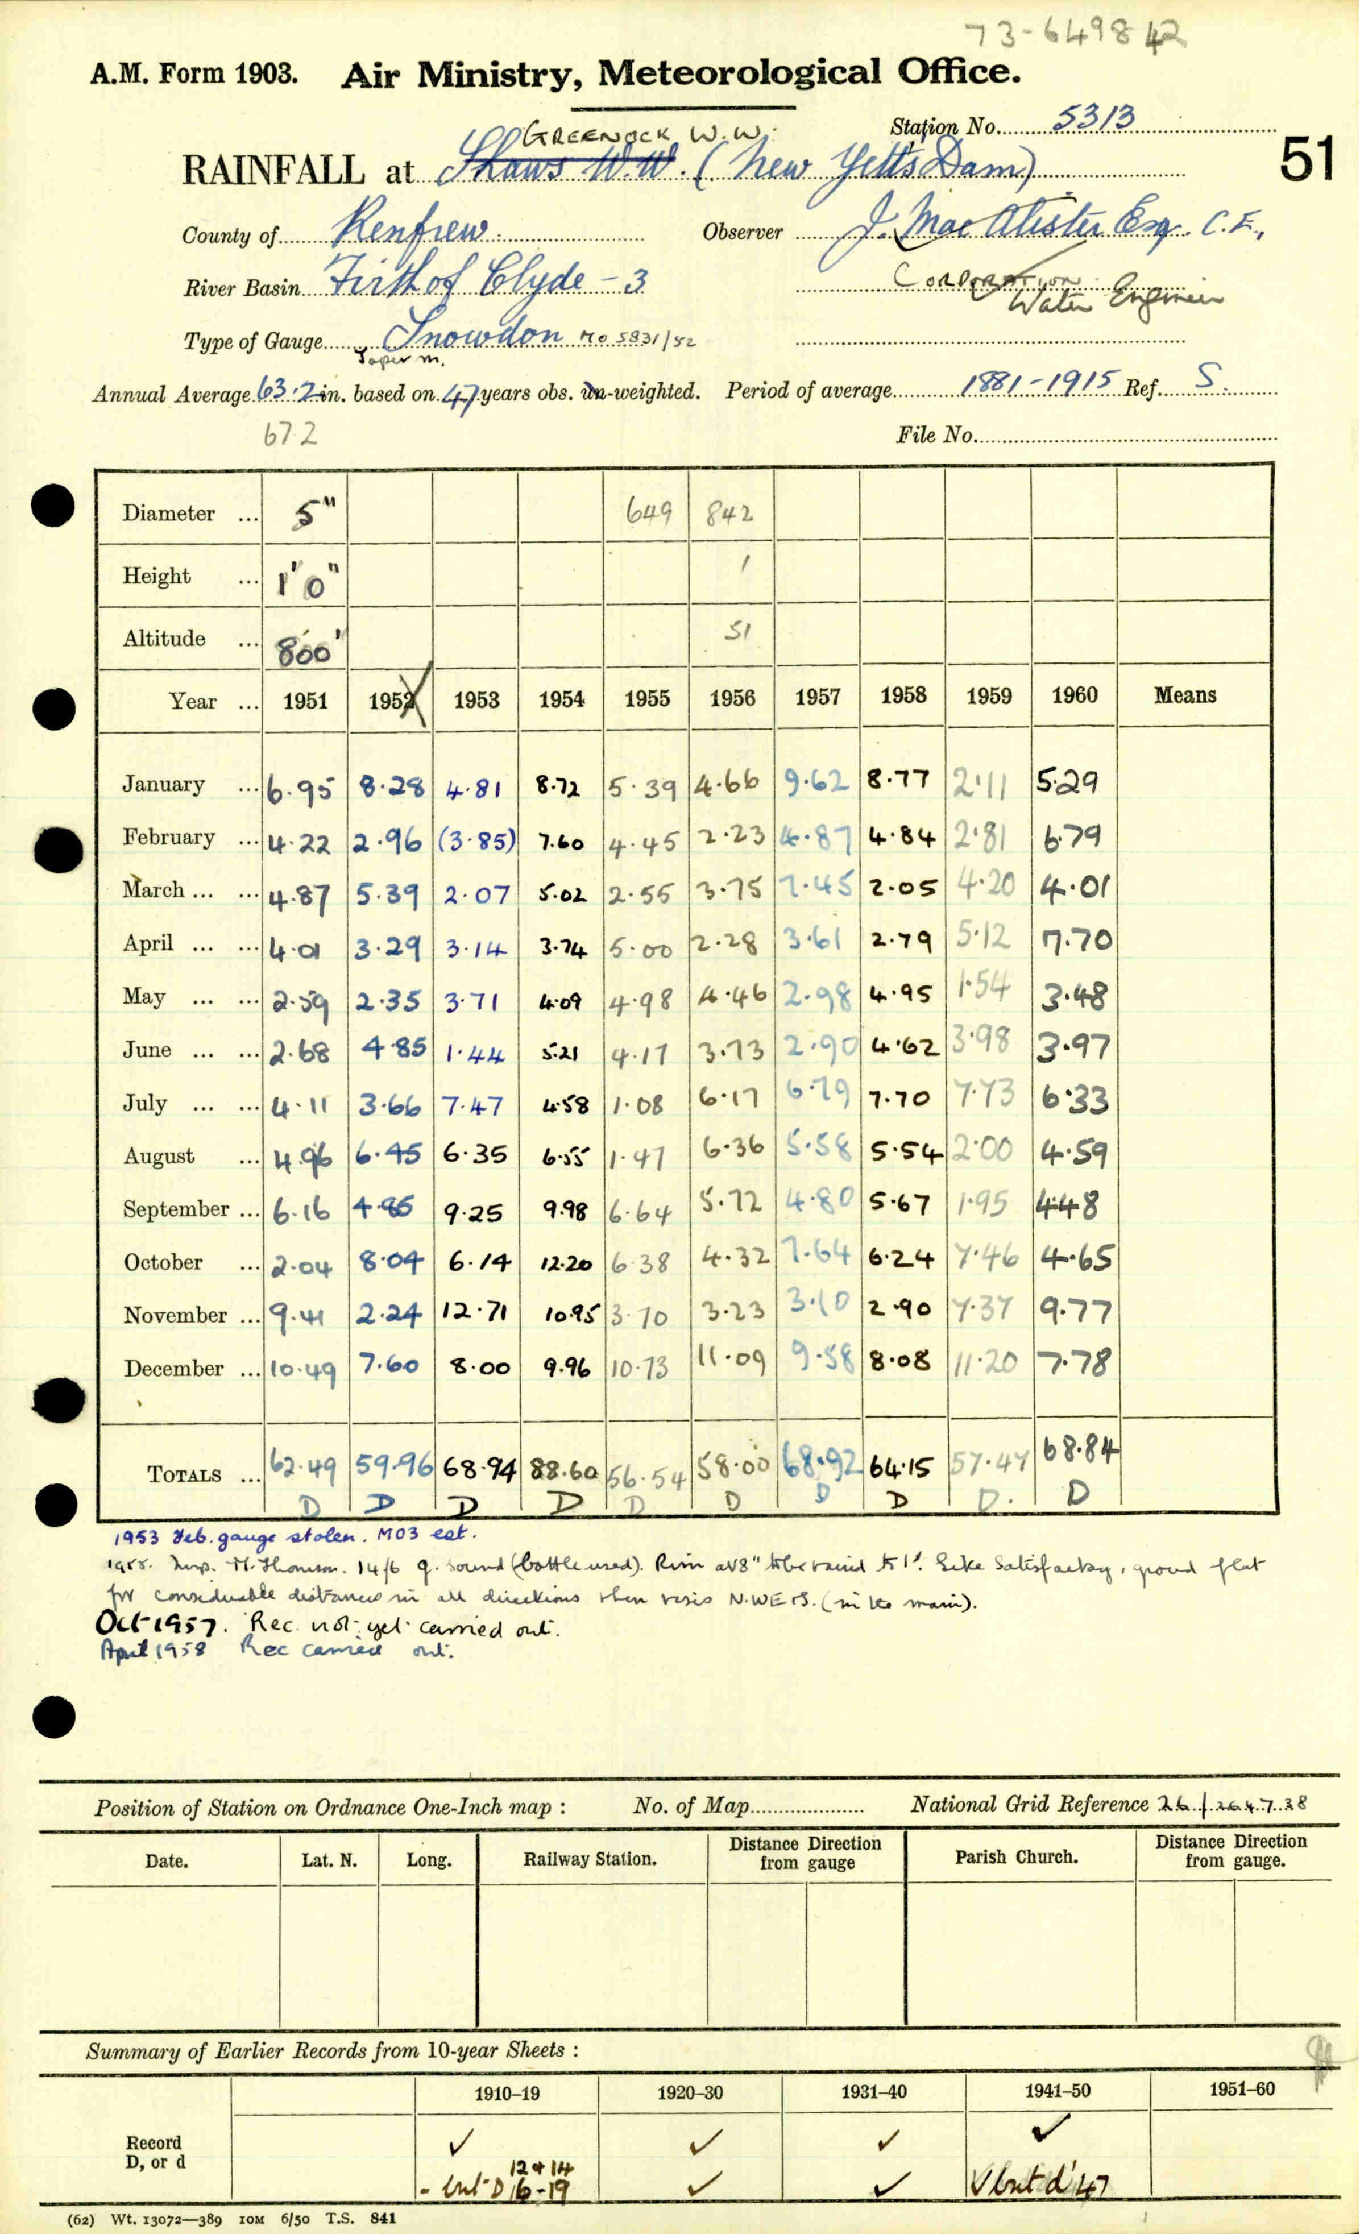 73-649842
A.M. Form 1903. Air Ministry, Meteorological Office.
Station No. 5313
GREENOCK W.W.
RAINFALL at Shaws W.W. (New Yetts Dam) 51
County of Renfrew. Observer J. Mac Alister Esq. C.E.,
CORPORATION
River Basin Firth of Clyde - 3 Water Engineer
Type of Gauge Snowdon MO 5831/52
Taper m.
Annual Average 63.2 in. based on 47 years obs. un-weighted. Period of average 1881-1915 Ref. S.
67 2 File No.
Diameter ... 5" 649 842
Height ... 1'0" 1
Altitude ... 800' 51
Year ... 1951 1952 1953 1954 1955 1956 1957 1958 1959 1960 Means
January ... 6.95 8.28 4.81 8.72 5.39 4.66 9.62 8.77 2.11 5.29
February ... 4.22 2.96 (3.85) 7.60 4.45 2.23 4.87 4.84 2.81 6.79
March ... ... 4.87 5.39 2.07 5.02 2.55 3.75 7.45 2.05 4.20 4.01
April ... ... 4.01 3.29 3.14 3.74 5.00 2.28 3.61 2.79 5.12 7.70
May ... ... 2.59 2.35 3.71 4.09 4.98 4.46 2.98 4.95 1.54 3.48
June ... ... 2.68 4.85 1.44 5.21 4.17 3.73 2.90 4.62 3.98 3.97
July ... ... 4.11 3.66 7.47 4.58 1.08 6.17 6.79 7.70 7.73 6.33
August ... 4.96 6.45 6.35 6.55 1.47 6.36 5.58 5.54 2.00 4.59
September ... 6.16 4.85 9.25 9.98 6.64 5.72 4.80 5.67 1.95 4.48
October ... 2.04 8.04 6.14 12.20 6.38 4.32 7.64 6.24 7.46 4.65
November ... 9.41 2.24 12.71 10.95 3.70 3.23 3.10 2.90 7.37 9.77
December ... 10.49 7.60 8.00 9.96 10.73 11.09 9.58 8.08 11.20 7.78
TOTALS ... 62.49 59.96 68.94 88.60 56.54 58.00 68.92 64.15 57.47 68.84
D D D D D D D D D. D
1953 Feb. gauge stolen. MO3 est.
Insp. H. Thomson. 14/6 g. sound (bottle used). Rim at 8" to be raised to 1'. Site satisfactory, ground flat
for considerable distances in all directions then rises N.WE & S. (in the main).
Oct 1957. Rec. not yet carried out.
April 1958 Rec carried out.
Position of Station on Ordnance One-Inch map : No. of Map National Grid Reference 26/264738
Date. Lat. N. Long. Railway Station. Distance from gauge Direction Parish Church. Distance from gauge. Direction
Summary of Earlier Records from 10-year Sheets :
1910-19 1920-30 1931-40 1941-50 1951-60
Record ✓ ✓ ✓ ✓
D, or d 12 & 14
- but D 16-19 ✓ ✓ ✓ but d '47
(62) Wt. 13072—389 10M 6/50 T.S. 841